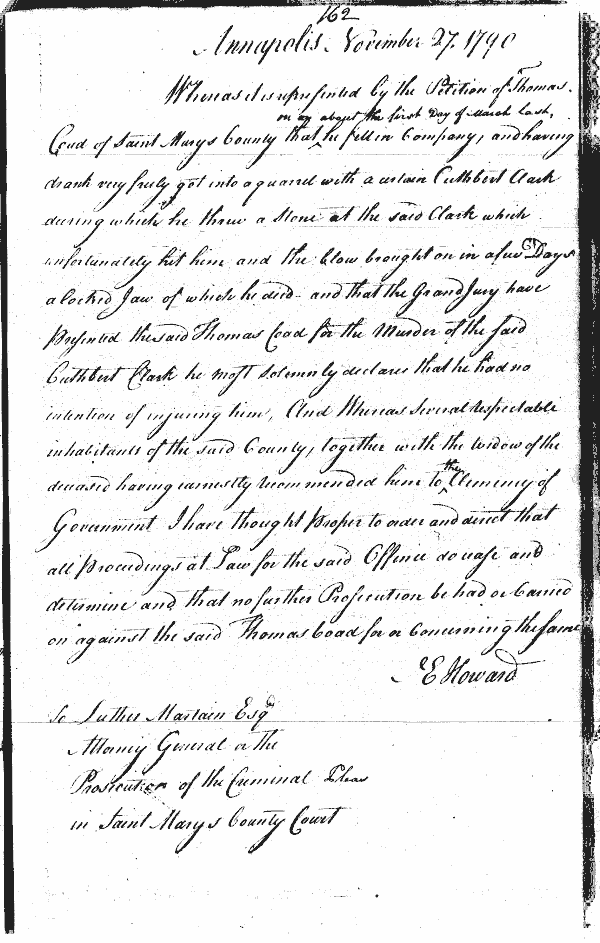 162
Annapolis November 27. 1790
Whereas it is represented by the Petition of Thomas
on or about the first Day of March last,
Coad of Saint Marys County that he fell in Company, and having
drank very freely got into a quarrel with a certain Cuthbert Clark
during which he threw a Stone at the said Clark which
unfortunately hit him and the blow brought on in a few Days
a locked Jaw of which he died - and that the Grand Jury have
presented the said Thomas Coad for the Murder of the said
Cuthbert Clark he most solemnly declares that he had no
intention of injuring him, And Whereas several respectable
inhabitants of the said County, together with the widow of the
deceased having earnestly recommended him to the Clemency of
Government I have thought proper to order and direct that
all proceedings at Law for the said Offence do cease and
determine and that no further Prosecution be had or Carried
on against the said Thomas Coad for or Concerning the same
E Howard
To Luther Martain Esqr
Attorney General or the
Prosecution of the Criminal Pleas
in Saint Marys County Court